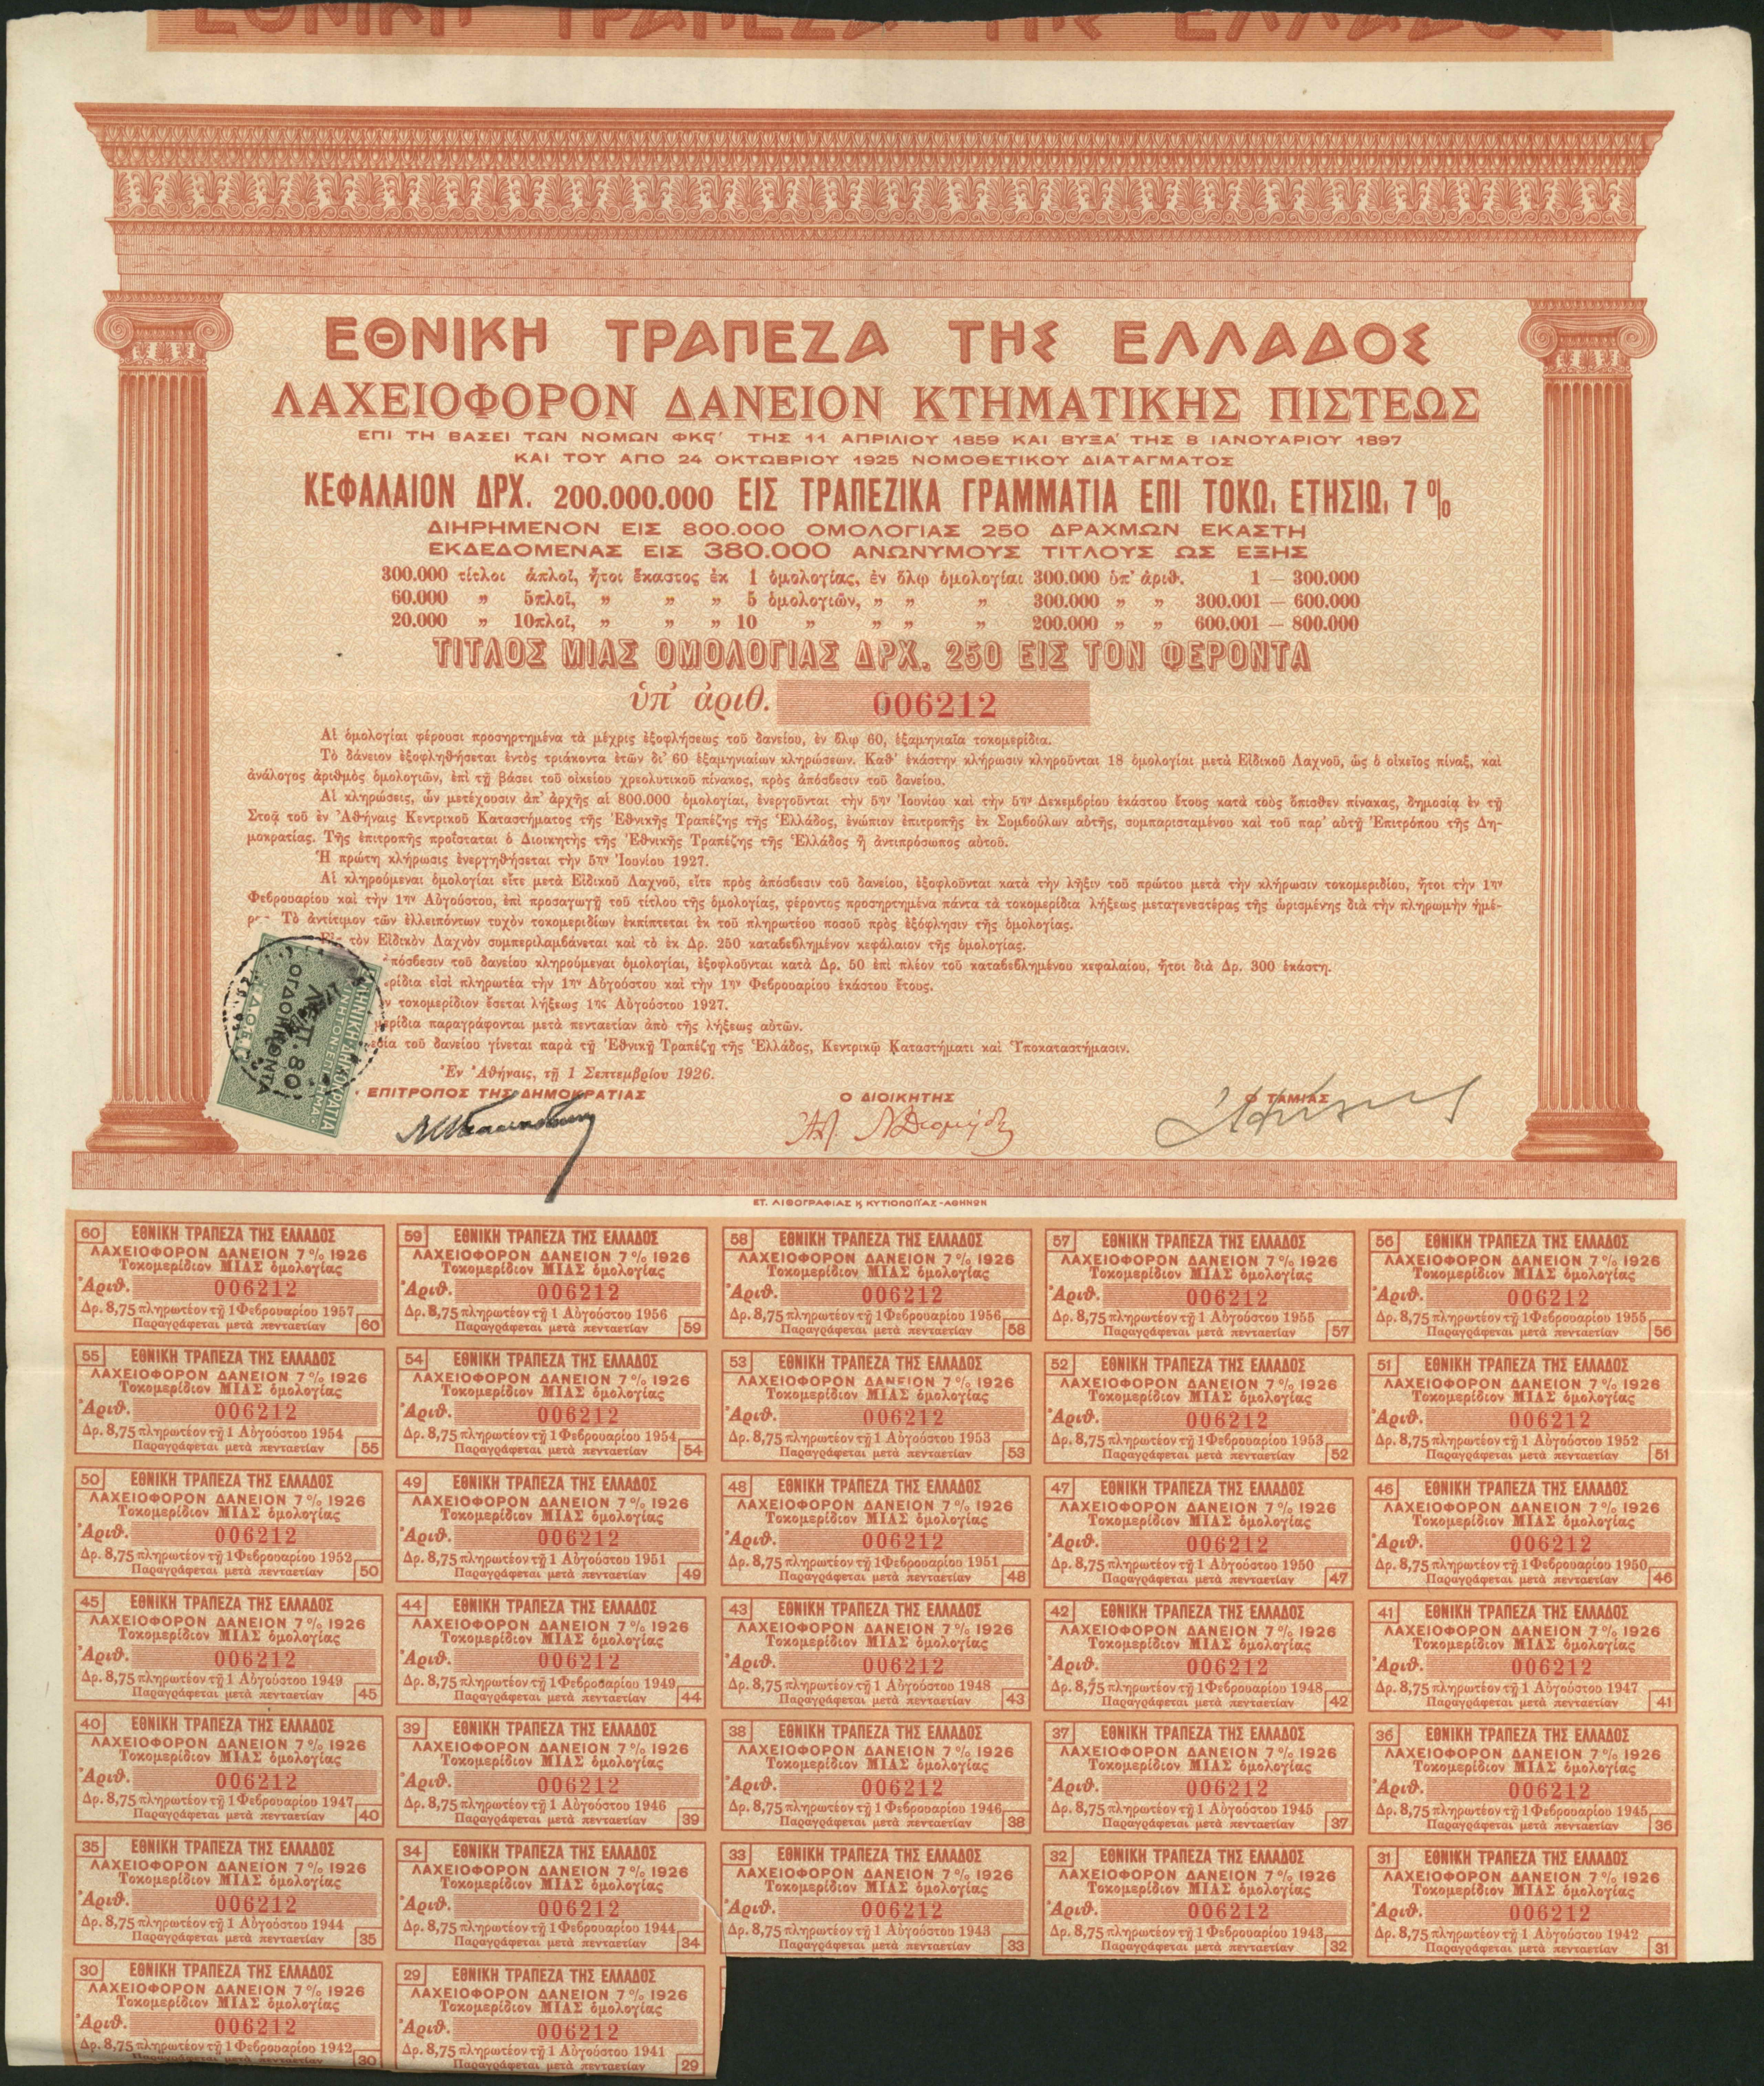 ΕΘΝΙΚΗ ΤΡΑΠΕΖΑ ΤΗΣ ΕΛΛΑΔΟΣ
ΕΘΝΙΚΗ ΤΡΑΠΕΖΑ ΤΗΣ ΕΛΛΑΔΟΣ
ΛΑΧΕΙΟΦΟΡΟΝ ΔΑΝΕΙΟΝ ΚΤΗΜΑΤΙΚΗΣ ΠΙΣΤΕΩΣ
ΕΠΙ ΤΗ ΒΑΣΕΙ ΤΩΝ ΝΟΜΩΝ ΦΚϚ′ ΤΗΣ 11 ΑΠΡΙΛΙΟΥ 1859 ΚΑΙ ΒΥΞΑ′ ΤΗΣ 8 ΙΑΝΟΥΑΡΙΟΥ 1897
ΚΑΙ ΤΟΥ ΑΠΟ 24 ΟΚΤΩΒΡΙΟΥ 1925 ΝΟΜΟΘΕΤΙΚΟΥ ΔΙΑΤΑΓΜΑΤΟΣ
ΚΕΦΑΛΑΙΟΝ ΔΡΧ. 200.000.000 ΕΙΣ ΤΡΑΠΕΖΙΚΑ ΓΡΑΜΜΑΤΙΑ ΕΠΙ ΤΟΚΩι ΕΤΗΣΙΩι 7%
ΔΙΗΡΗΜΕΝΟΝ ΕΙΣ 800.000 ΟΜΟΛΟΓΙΑΣ 250 ΔΡΑΧΜΩΝ ΕΚΑΣΤΗ
ΕΚΔΕΔΟΜΕΝΑΣ ΕΙΣ 380.000 ΑΝΩΝΥΜΟΥΣ ΤΙΤΛΟΥΣ ΩΣ ΕΞΗΣ
300.000 τίτλοι ἁπλοῖ, ἤτοι ἕκαστος ἐκ 1 ὁμολογίας, ἐν ὅλῳ ὁμολογίαι 300.000 ὑπ' ἀριθ. 1 — 300.000
60.000 » 5πλοῖ, » » » 5 ὁμολογιῶν, » » » 300.000 » » 300.001 — 600.000
20.000 » 10πλοῖ, » » » 10 » » » » 200.000 » » 600.001 — 800.000
ΤΙΤΛΟΣ ΜΙΑΣ ΟΜΟΛΟΓΙΑΣ ΔΡΧ. 250 ΕΙΣ ΤΟΝ ΦΕΡΟΝΤΑ
ὑπ' ἀριθ. 006212
Αἱ ὁμολογίαι φέρουσι προσηρτημένα τὰ μέχρις ἐξοφλήσεως τοῦ δανείου, ἐν ὅλῳ 60, ἑξαμηνιαῖα τοκομερίδια.
Τὸ δάνειον ἐξοφληθήσεται ἐντὸς τριάκοντα ἐτῶν δι' 60 ἑξαμηνιαίων κληρώσεων. Καθ' ἑκάστην κλήρωσιν κληροῦνται 18 ὁμολογίαι μετὰ Εἰδικοῦ Λαχνοῦ, ὡς ὁ οἰκεῖος πίναξ, καὶ
ἀνάλογος ἀριθμὸς ὁμολογιῶν, ἐπὶ τῇ βάσει τοῦ οἰκείου χρεολυτικοῦ πίνακος, πρὸς ἀπόσβεσιν τοῦ δανείου.
Αἱ κληρώσεις, ὧν μετέχουσιν ἀπ' ἀρχῆς αἱ 800.000 ὁμολογίαι, ἐνεργοῦνται τὴν 5ην Ἰουνίου καὶ τὴν 5ην Δεκεμβρίου ἑκάστου ἔτους κατὰ τοὺς ὄπισθεν πίνακας, δημοσίᾳ ἐν τῇ
Στοᾷ τοῦ ἐν Ἀθήναις Κεντρικοῦ Καταστήματος τῆς Ἐθνικῆς Τραπέζης τῆς Ἑλλάδος, ἐνώπιον ἐπιτροπῆς ἐκ Συμβούλων αὐτῆς, συμπαρισταμένου καὶ τοῦ παρ' αὐτῇ Ἐπιτρόπου τῆς Δη-
μοκρατίας. Τῆς ἐπιτροπῆς προΐσταται ὁ Διοικητὴς τῆς Ἐθνικῆς Τραπέζης τῆς Ἑλλάδος ἢ ἀντιπρόσωπος αὐτοῦ.
Ἡ πρώτη κλήρωσις ἐνεργηθήσεται τὴν 5ην Ἰουνίου 1927.
Αἱ κληρούμεναι ὁμολογίαι εἴτε μετὰ Εἰδικοῦ Λαχνοῦ, εἴτε πρὸς ἀπόσβεσιν τοῦ δανείου, ἐξοφλοῦνται κατὰ τὴν λῆξιν τοῦ πρώτου μετὰ τὴν κλήρωσιν τοκομεριδίου, ἤτοι τὴν 1ην
Φεβρουαρίου καὶ τὴν 1ην Αὐγούστου, ἐπὶ προσαγωγῇ τοῦ τίτλου τῆς ὁμολογίας, φέροντος προσηρτημένα πάντα τὰ τοκομερίδια λήξεως μεταγενεστέρας τῆς ὡρισμένης διὰ τὴν πληρωμὴν ἡμέ-
Τὸ ἀντίτιμον τῶν ἐλλειπόντων τυχὸν τοκομεριδίων ἐκπίπτεται ἐκ τοῦ πληρωτέου ποσοῦ πρὸς ἐξόφλησιν τῆς ὁμολογίας.
Εἰς τὸν Εἰδικὸν Λαχνὸν συμπεριλαμβάνεται καὶ τὸ ἐκ Δρ. 250 καταβεβλημένον κεφάλαιον τῆς ὁμολογίας.
πόσβεσιν τοῦ δανείου κληρούμεναι ὁμολογίαι, ἐξοφλοῦνται κατὰ Δρ. 50 ἐπὶ πλέον τοῦ καταβεβλημένου κεφαλαίου, ἤτοι διὰ Δρ. 300 ἑκάστη.
ρίδια εἰσὶ πληρωτέα τὴν 1ην Αὐγούστου καὶ τὴν 1ην Φεβρουαρίου ἑκάστου ἔτους.
ν τοκομερίδιον ἔσεται λήξεως 1ης Αὐγούστου 1927.
μερίδια παραγράφονται μετὰ πενταετίαν ἀπὸ τῆς λήξεως αὐτῶν.
εσία τοῦ δανείου γίνεται παρὰ τῇ Ἐθνικῇ Τραπέζῃ τῆς Ἑλλάδος, Κεντρικῷ Καταστήματι καὶ Ὑποκαταστήμασιν.
Ἐν Ἀθήναις, τῇ 1 Σεπτεμβρίου 1926.
ΕΠΙΤΡΟΠΟΣ ΤΗΣ ΔΗΜΟΚΡΑΤΙΑΣ Ο ΔΙΟΙΚΗΤΗΣ Ο ΤΑΜΙΑΣ
ΕΛΛΗΝΙΚΗ ΔΗΜΟΚΡΑΤΙΑ
ΛΕΠΤ. 80
ΟΓΔΟΗΚΟΝΤΑ
ΕΤ. ΛΙΘΟΓΡΑΦΙΑΣ & ΚΥΤΙΟΠΟΙΪΑΣ - ΑΘΗΝΩΝ
60 ΕΘΝΙΚΗ ΤΡΑΠΕΖΑ ΤΗΣ ΕΛΛΑΔΟΣ
ΛΑΧΕΙΟΦΟΡΟΝ ΔΑΝΕΙΟΝ 7% 1926
Τοκομερίδιον ΜΙΑΣ ὁμολογίας
Ἀριθ. 006212
Δρ. 8,75 πληρωτέον τῇ 1 Φεβρουαρίου 1957
Παραγράφεται μετὰ πενταετίαν 60
59 ΕΘΝΙΚΗ ΤΡΑΠΕΖΑ ΤΗΣ ΕΛΛΑΔΟΣ
ΛΑΧΕΙΟΦΟΡΟΝ ΔΑΝΕΙΟΝ 7% 1926
Τοκομερίδιον ΜΙΑΣ ὁμολογίας
Ἀριθ. 006212
Δρ. 8,75 πληρωτέον τῇ 1 Αὐγούστου 1956
Παραγράφεται μετὰ πενταετίαν 59
58 ΕΘΝΙΚΗ ΤΡΑΠΕΖΑ ΤΗΣ ΕΛΛΑΔΟΣ
ΛΑΧΕΙΟΦΟΡΟΝ ΔΑΝΕΙΟΝ 7% 1926
Τοκομερίδιον ΜΙΑΣ ὁμολογίας
Ἀριθ. 006212
Δρ. 8,75 πληρωτέον τῇ 1 Φεβρουαρίου 1956
Παραγράφεται μετὰ πενταετίαν 58
57 ΕΘΝΙΚΗ ΤΡΑΠΕΖΑ ΤΗΣ ΕΛΛΑΔΟΣ
ΛΑΧΕΙΟΦΟΡΟΝ ΔΑΝΕΙΟΝ 7% 1926
Τοκομερίδιον ΜΙΑΣ ὁμολογίας
Ἀριθ. 006212
Δρ. 8,75 πληρωτέον τῇ 1 Αὐγούστου 1955
Παραγράφεται μετὰ πενταετίαν 57
56 ΕΘΝΙΚΗ ΤΡΑΠΕΖΑ ΤΗΣ ΕΛΛΑΔΟΣ
ΛΑΧΕΙΟΦΟΡΟΝ ΔΑΝΕΙΟΝ 7% 1926
Τοκομερίδιον ΜΙΑΣ ὁμολογίας
Ἀριθ. 006212
Δρ. 8,75 πληρωτέον τῇ 1 Φεβρουαρίου 1955
Παραγράφεται μετὰ πενταετίαν 56
55 ΕΘΝΙΚΗ ΤΡΑΠΕΖΑ ΤΗΣ ΕΛΛΑΔΟΣ
ΛΑΧΕΙΟΦΟΡΟΝ ΔΑΝΕΙΟΝ 7% 1926
Τοκομερίδιον ΜΙΑΣ ὁμολογίας
Ἀριθ. 006212
Δρ. 8,75 πληρωτέον τῇ 1 Αὐγούστου 1954
Παραγράφεται μετὰ πενταετίαν 55
54 ΕΘΝΙΚΗ ΤΡΑΠΕΖΑ ΤΗΣ ΕΛΛΑΔΟΣ
ΛΑΧΕΙΟΦΟΡΟΝ ΔΑΝΕΙΟΝ 7% 1926
Τοκομερίδιον ΜΙΑΣ ὁμολογίας
Ἀριθ. 006212
Δρ. 8,75 πληρωτέον τῇ 1 Φεβρουαρίου 1954
Παραγράφεται μετὰ πενταετίαν 54
53 ΕΘΝΙΚΗ ΤΡΑΠΕΖΑ ΤΗΣ ΕΛΛΑΔΟΣ
ΛΑΧΕΙΟΦΟΡΟΝ ΔΑΝΕΙΟΝ 7% 1926
Τοκομερίδιον ΜΙΑΣ ὁμολογίας
Ἀριθ. 006212
Δρ. 8,75 πληρωτέον τῇ 1 Αὐγούστου 1953
Παραγράφεται μετὰ πενταετίαν 53
52 ΕΘΝΙΚΗ ΤΡΑΠΕΖΑ ΤΗΣ ΕΛΛΑΔΟΣ
ΛΑΧΕΙΟΦΟΡΟΝ ΔΑΝΕΙΟΝ 7% 1926
Τοκομερίδιον ΜΙΑΣ ὁμολογίας
Ἀριθ. 006212
Δρ. 8,75 πληρωτέον τῇ 1 Φεβρουαρίου 1953
Παραγράφεται μετὰ πενταετίαν 52
51 ΕΘΝΙΚΗ ΤΡΑΠΕΖΑ ΤΗΣ ΕΛΛΑΔΟΣ
ΛΑΧΕΙΟΦΟΡΟΝ ΔΑΝΕΙΟΝ 7% 1926
Τοκομερίδιον ΜΙΑΣ ὁμολογίας
Ἀριθ. 006212
Δρ. 8,75 πληρωτέον τῇ 1 Αὐγούστου 1952
Παραγράφεται μετὰ πενταετίαν 51
50 ΕΘΝΙΚΗ ΤΡΑΠΕΖΑ ΤΗΣ ΕΛΛΑΔΟΣ
ΛΑΧΕΙΟΦΟΡΟΝ ΔΑΝΕΙΟΝ 7% 1926
Τοκομερίδιον ΜΙΑΣ ὁμολογίας
Ἀριθ. 006212
Δρ. 8,75 πληρωτέον τῇ 1 Φεβρουαρίου 1952
Παραγράφεται μετὰ πενταετίαν 50
49 ΕΘΝΙΚΗ ΤΡΑΠΕΖΑ ΤΗΣ ΕΛΛΑΔΟΣ
ΛΑΧΕΙΟΦΟΡΟΝ ΔΑΝΕΙΟΝ 7% 1926
Τοκομερίδιον ΜΙΑΣ ὁμολογίας
Ἀριθ. 006212
Δρ. 8,75 πληρωτέον τῇ 1 Αὐγούστου 1951
Παραγράφεται μετὰ πενταετίαν 49
48 ΕΘΝΙΚΗ ΤΡΑΠΕΖΑ ΤΗΣ ΕΛΛΑΔΟΣ
ΛΑΧΕΙΟΦΟΡΟΝ ΔΑΝΕΙΟΝ 7% 1926
Τοκομερίδιον ΜΙΑΣ ὁμολογίας
Ἀριθ. 006212
Δρ. 8,75 πληρωτέον τῇ 1 Φεβρουαρίου 1951
Παραγράφεται μετὰ πενταετίαν 48
47 ΕΘΝΙΚΗ ΤΡΑΠΕΖΑ ΤΗΣ ΕΛΛΑΔΟΣ
ΛΑΧΕΙΟΦΟΡΟΝ ΔΑΝΕΙΟΝ 7% 1926
Τοκομερίδιον ΜΙΑΣ ὁμολογίας
Ἀριθ. 006212
Δρ. 8,75 πληρωτέον τῇ 1 Αὐγούστου 1950
Παραγράφεται μετὰ πενταετίαν 47
46 ΕΘΝΙΚΗ ΤΡΑΠΕΖΑ ΤΗΣ ΕΛΛΑΔΟΣ
ΛΑΧΕΙΟΦΟΡΟΝ ΔΑΝΕΙΟΝ 7% 1926
Τοκομερίδιον ΜΙΑΣ ὁμολογίας
Ἀριθ. 006212
Δρ. 8,75 πληρωτέον τῇ 1 Φεβρουαρίου 1950
Παραγράφεται μετὰ πενταετίαν 46
45 ΕΘΝΙΚΗ ΤΡΑΠΕΖΑ ΤΗΣ ΕΛΛΑΔΟΣ
ΛΑΧΕΙΟΦΟΡΟΝ ΔΑΝΕΙΟΝ 7% 1926
Τοκομερίδιον ΜΙΑΣ ὁμολογίας
Ἀριθ. 006212
Δρ. 8,75 πληρωτέον τῇ 1 Αὐγούστου 1949
Παραγράφεται μετὰ πενταετίαν 45
44 ΕΘΝΙΚΗ ΤΡΑΠΕΖΑ ΤΗΣ ΕΛΛΑΔΟΣ
ΛΑΧΕΙΟΦΟΡΟΝ ΔΑΝΕΙΟΝ 7% 1926
Τοκομερίδιον ΜΙΑΣ ὁμολογίας
Ἀριθ. 006212
Δρ. 8,75 πληρωτέον τῇ 1 Φεβρουαρίου 1949
Παραγράφεται μετὰ πενταετίαν 44
43 ΕΘΝΙΚΗ ΤΡΑΠΕΖΑ ΤΗΣ ΕΛΛΑΔΟΣ
ΛΑΧΕΙΟΦΟΡΟΝ ΔΑΝΕΙΟΝ 7% 1926
Τοκομερίδιον ΜΙΑΣ ὁμολογίας
Ἀριθ. 006212
Δρ. 8,75 πληρωτέον τῇ 1 Αὐγούστου 1948
Παραγράφεται μετὰ πενταετίαν 43
42 ΕΘΝΙΚΗ ΤΡΑΠΕΖΑ ΤΗΣ ΕΛΛΑΔΟΣ
ΛΑΧΕΙΟΦΟΡΟΝ ΔΑΝΕΙΟΝ 7% 1926
Τοκομερίδιον ΜΙΑΣ ὁμολογίας
Ἀριθ. 006212
Δρ. 8,75 πληρωτέον τῇ 1 Φεβρουαρίου 1948
Παραγράφεται μετὰ πενταετίαν 42
41 ΕΘΝΙΚΗ ΤΡΑΠΕΖΑ ΤΗΣ ΕΛΛΑΔΟΣ
ΛΑΧΕΙΟΦΟΡΟΝ ΔΑΝΕΙΟΝ 7% 1926
Τοκομερίδιον ΜΙΑΣ ὁμολογίας
Ἀριθ. 006212
Δρ. 8,75 πληρωτέον τῇ 1 Αὐγούστου 1947
Παραγράφεται μετὰ πενταετίαν 41
40 ΕΘΝΙΚΗ ΤΡΑΠΕΖΑ ΤΗΣ ΕΛΛΑΔΟΣ
ΛΑΧΕΙΟΦΟΡΟΝ ΔΑΝΕΙΟΝ 7% 1926
Τοκομερίδιον ΜΙΑΣ ὁμολογίας
Ἀριθ. 006212
Δρ. 8,75 πληρωτέον τῇ 1 Φεβρουαρίου 1947
Παραγράφεται μετὰ πενταετίαν 40
39 ΕΘΝΙΚΗ ΤΡΑΠΕΖΑ ΤΗΣ ΕΛΛΑΔΟΣ
ΛΑΧΕΙΟΦΟΡΟΝ ΔΑΝΕΙΟΝ 7% 1926
Τοκομερίδιον ΜΙΑΣ ὁμολογίας
Ἀριθ. 006212
Δρ. 8,75 πληρωτέον τῇ 1 Αὐγούστου 1946
Παραγράφεται μετὰ πενταετίαν 39
38 ΕΘΝΙΚΗ ΤΡΑΠΕΖΑ ΤΗΣ ΕΛΛΑΔΟΣ
ΛΑΧΕΙΟΦΟΡΟΝ ΔΑΝΕΙΟΝ 7% 1926
Τοκομερίδιον ΜΙΑΣ ὁμολογίας
Ἀριθ. 006212
Δρ. 8,75 πληρωτέον τῇ 1 Φεβρουαρίου 1946
Παραγράφεται μετὰ πενταετίαν 38
37 ΕΘΝΙΚΗ ΤΡΑΠΕΖΑ ΤΗΣ ΕΛΛΑΔΟΣ
ΛΑΧΕΙΟΦΟΡΟΝ ΔΑΝΕΙΟΝ 7% 1926
Τοκομερίδιον ΜΙΑΣ ὁμολογίας
Ἀριθ. 006212
Δρ. 8,75 πληρωτέον τῇ 1 Αὐγούστου 1945
Παραγράφεται μετὰ πενταετίαν 37
36 ΕΘΝΙΚΗ ΤΡΑΠΕΖΑ ΤΗΣ ΕΛΛΑΔΟΣ
ΛΑΧΕΙΟΦΟΡΟΝ ΔΑΝΕΙΟΝ 7% 1926
Τοκομερίδιον ΜΙΑΣ ὁμολογίας
Ἀριθ. 006212
Δρ. 8,75 πληρωτέον τῇ 1 Φεβρουαρίου 1945
Παραγράφεται μετὰ πενταετίαν 36
35 ΕΘΝΙΚΗ ΤΡΑΠΕΖΑ ΤΗΣ ΕΛΛΑΔΟΣ
ΛΑΧΕΙΟΦΟΡΟΝ ΔΑΝΕΙΟΝ 7% 1926
Τοκομερίδιον ΜΙΑΣ ὁμολογίας
Ἀριθ. 006212
Δρ. 8,75 πληρωτέον τῇ 1 Αὐγούστου 1944
Παραγράφεται μετὰ πενταετίαν 35
34 ΕΘΝΙΚΗ ΤΡΑΠΕΖΑ ΤΗΣ ΕΛΛΑΔΟΣ
ΛΑΧΕΙΟΦΟΡΟΝ ΔΑΝΕΙΟΝ 7% 1926
Τοκομερίδιον ΜΙΑΣ ὁμολογίας
Ἀριθ. 006212
Δρ. 8,75 πληρωτέον τῇ 1 Φεβρουαρίου 1944
Παραγράφεται μετὰ πενταετίαν 34
33 ΕΘΝΙΚΗ ΤΡΑΠΕΖΑ ΤΗΣ ΕΛΛΑΔΟΣ
ΛΑΧΕΙΟΦΟΡΟΝ ΔΑΝΕΙΟΝ 7% 1926
Τοκομερίδιον ΜΙΑΣ ὁμολογίας
Ἀριθ. 006212
Δρ. 8,75 πληρωτέον τῇ 1 Αὐγούστου 1943
Παραγράφεται μετὰ πενταετίαν 33
32 ΕΘΝΙΚΗ ΤΡΑΠΕΖΑ ΤΗΣ ΕΛΛΑΔΟΣ
ΛΑΧΕΙΟΦΟΡΟΝ ΔΑΝΕΙΟΝ 7% 1926
Τοκομερίδιον ΜΙΑΣ ὁμολογίας
Ἀριθ. 006212
Δρ. 8,75 πληρωτέον τῇ 1 Φεβρουαρίου 1943
Παραγράφεται μετὰ πενταετίαν 32
31 ΕΘΝΙΚΗ ΤΡΑΠΕΖΑ ΤΗΣ ΕΛΛΑΔΟΣ
ΛΑΧΕΙΟΦΟΡΟΝ ΔΑΝΕΙΟΝ 7% 1926
Τοκομερίδιον ΜΙΑΣ ὁμολογίας
Ἀριθ. 006212
Δρ. 8,75 πληρωτέον τῇ 1 Αὐγούστου 1942
Παραγράφεται μετὰ πενταετίαν 31
30 ΕΘΝΙΚΗ ΤΡΑΠΕΖΑ ΤΗΣ ΕΛΛΑΔΟΣ
ΛΑΧΕΙΟΦΟΡΟΝ ΔΑΝΕΙΟΝ 7% 1926
Τοκομερίδιον ΜΙΑΣ ὁμολογίας
Ἀριθ. 006212
Δρ. 8,75 πληρωτέον τῇ 1 Φεβρουαρίου 1942
Παραγράφεται μετὰ πενταετίαν 30
29 ΕΘΝΙΚΗ ΤΡΑΠΕΖΑ ΤΗΣ ΕΛΛΑΔΟΣ
ΛΑΧΕΙΟΦΟΡΟΝ ΔΑΝΕΙΟΝ 7% 1926
Τοκομερίδιον ΜΙΑΣ ὁμολογίας
Ἀριθ. 006212
Δρ. 8,75 πληρωτέον τῇ 1 Αὐγούστου 1941
Παραγράφεται μετὰ πενταετίαν 29